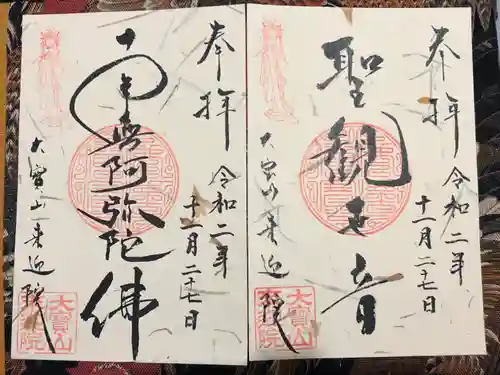 奉拝
令和二年
十一月二十七日
南無阿弥陀佛
大寶山来迎院
大寶山
来迎院
奉拝
令和二年
十一月二十七日
聖観世音
大寶山来迎院
大寶山
来迎院